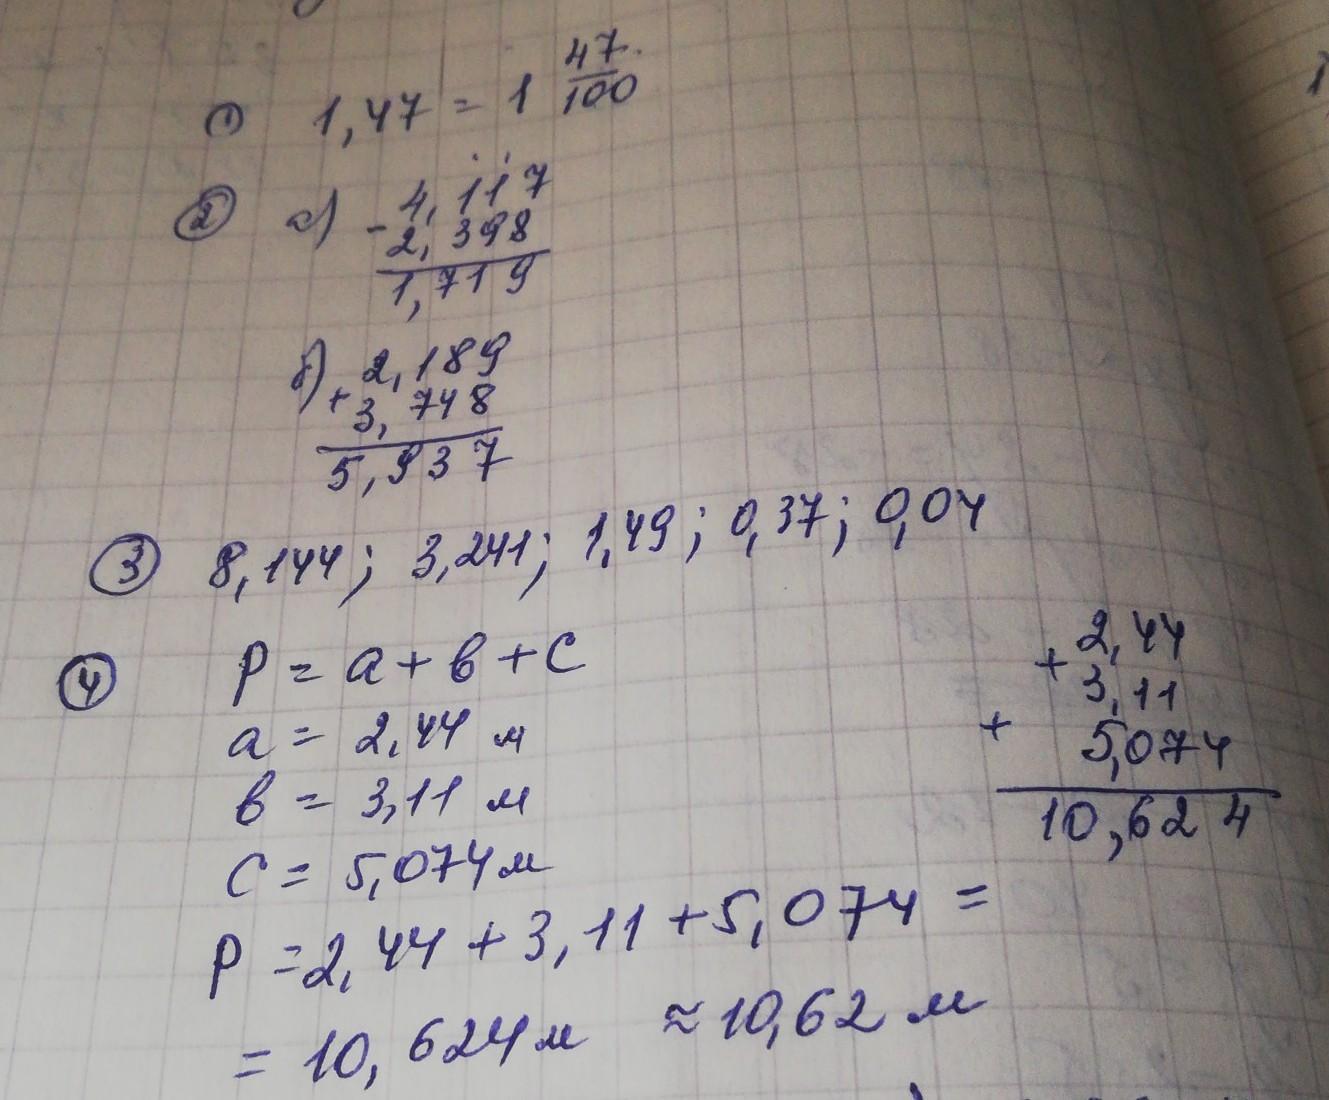 ① 1,47 = 1 47/100
② а) - 4,117
2,398
1,719
б) + 2,189
3,748
5,937
③ 8,144; 3,241; 1,49; 0,37; 0,04
④ P = a + в + c
a = 2,44 м
в = 3,11 м
c = 5,074 м
P = 2,44 + 3,11 + 5,074 =
= 10,624 м ≈ 10,62 м
+ 2,44
3,11
+ 5,074
10,624